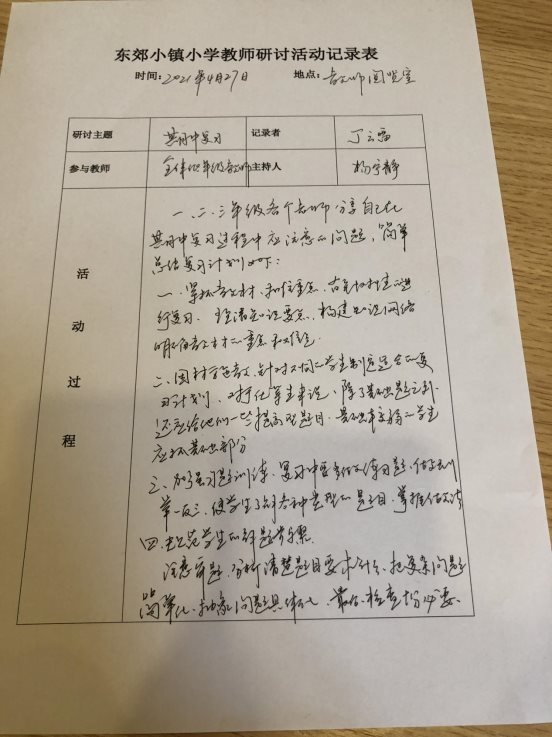 东郊小镇小学教师研讨活动记录表
时间：2021年4月27日 地点：教师阅览室
研讨主题 期中复习 记录者 丁云
参与教师 全体低年级教师 主持人 杨宇静
活动过程
一、二、三年级各个老师分享自己在
期中复习过程中应注意的问题，简单
总结复习计划如下：
一、紧抓教材，抓住重点，有针对性的进
行复习。理清知识要点，构建知识网络
明确教材的重点和难点
二、因材施教，针对不同的学生制定适合的复
习计划，对于优等生来说，除了基础题之外
还应给他们一些提高型题目，基础较弱的学生
应抓基础部分
三、加强习题训练，复习中要多做练习题，做到
举一反三，使学生了解各种类型的题目，掌握做题方法
四、规范学生的解题步骤
注意审题，分析清楚题目要求什么，把复杂问题
简单化，抽象问题具体化，最后检查十分必要。